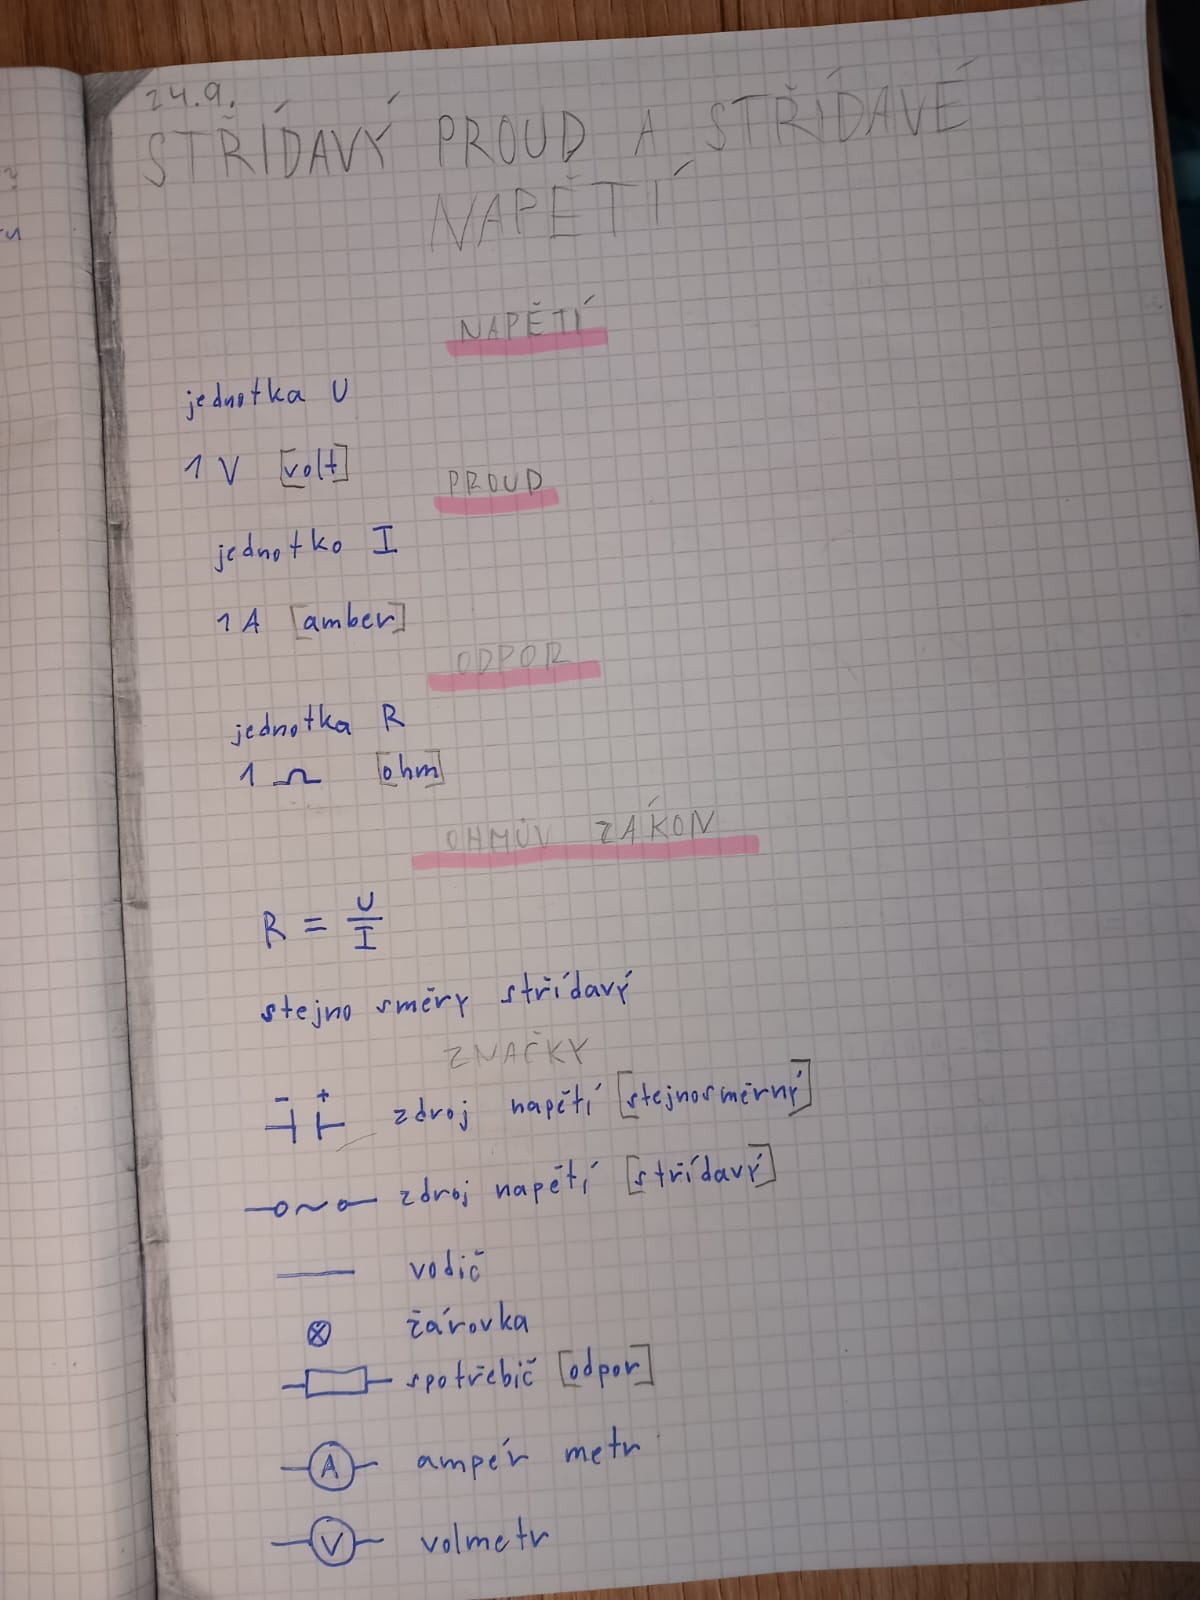 24.9.
STŘÍDAVÝ PROUD A STŘÍDAVÉ
NAPĚTÍ
NAPĚTÍ
jednotka U
1 V [volt]
PROUD
jednotko I
1 A [amber]
ODPOR
jednotka R
1 Ω [ohm]
OHMŮV ZÁKON
R = U/I
stejno směry střídavý
ZNAČKY
- + zdroj napětí [stejnosměrný]
~ zdroj napětí [střídavý]
vodič
žárovka
spotřebič [odpor]
A ampér metr
V volmetr